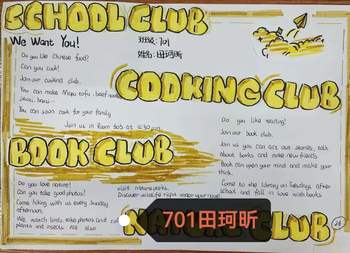 SCHOOL CLUB
We Want You!
班级: 701
姓名: 田珂昕
Do you like Chinese food?
Can you cook?
Join our cooking club.
You can make Mapo tofu, beef
You can soon cook for your family
Join us in Room 303 at
COOKING CLUB
Do you like reading?
Join our book club.
Join us you can
about books and make new friends.
Book can open your mind and make your
think.
Come to the library on Tuesdays after
school and fall in love with books
BOOK CLUB
Do you love nature?
Can you take good photos?
Come hiking with us every Sunday
afternoon.
We watch birds, take photos
plants and insects. We also
visit nature parks.
Discover wildlife right under your nose!
CLUB
701田珂昕